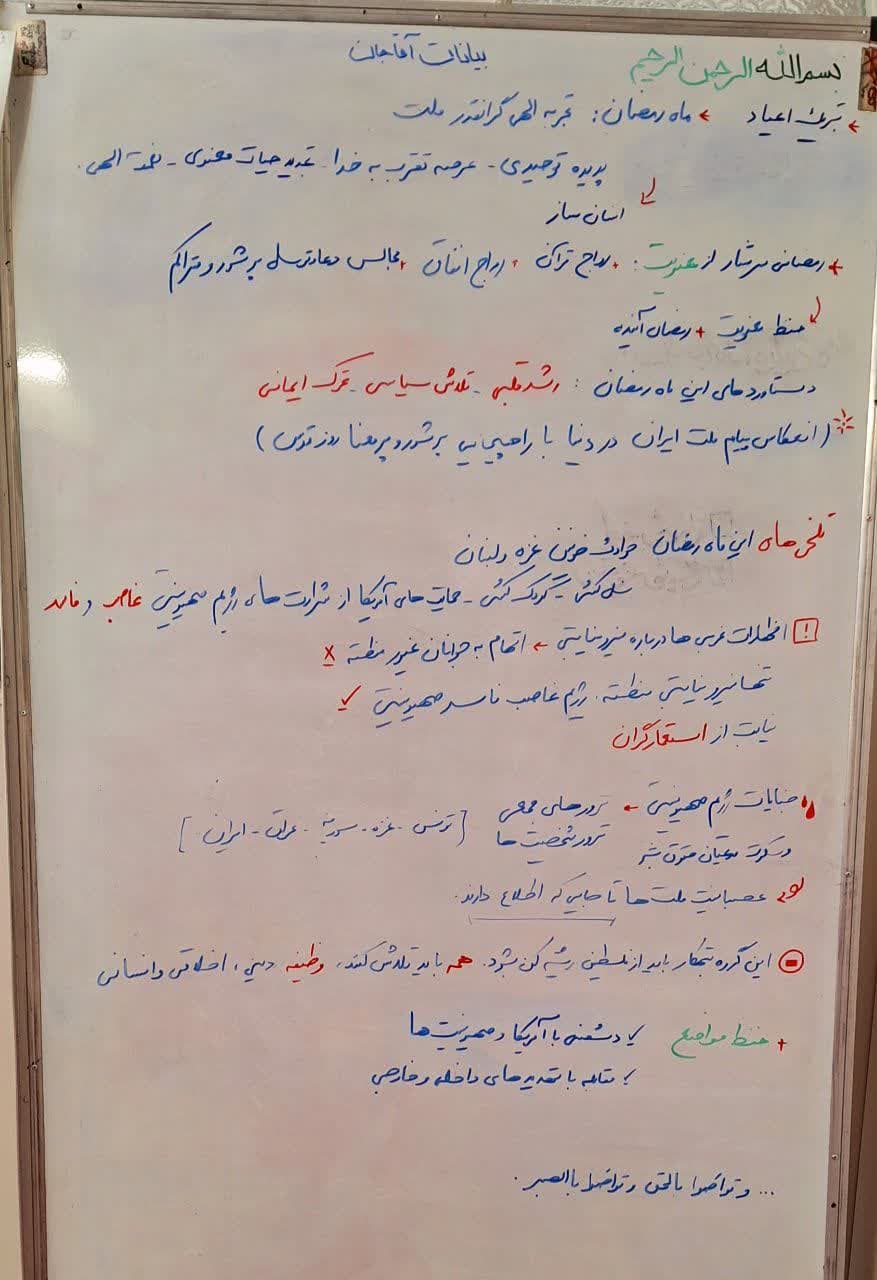 بسم الله الرحمن الرحیم
بیانات آقاجان
تبریک اعیاد ← ماه رمضان: تجربه الهی گرانقدر ملت
پدیده توحیدی - عرصه تقرب به خدا - تجدید حیات معنوی - نعمت الهی.
انسان ساز
رمضانی سرشار از معنویت: + رواج قرآن + رواج انفاق + مجالس دعا و توسل پرشور و متراکم
حفظ معنویت + رمضان آینده
دستاوردهای این ماه رمضان: رشد قلبی - تلاش سیاسی - تحرک ایمانی
(انعکاس پیام ملت ایران در دنیا با راهپیمایی پرشور و پرمعنا روز قدس)
تلخی های این ماه رمضان حوادث خونین غزه و لبنان
نسل کشی - کودک کشی - حمایت های آمریکا از شرارت های رژیم صهیونیستی غاصب و فاسد
! اظهارات غربی ها درباره نیرو نیابتی ← اتهام به جوانان غیور منطقه x
تنها نیرو نیابتی منطقه: رژیم غاصب فاسد صهیونیستی ✓
نیابت از استعمارگران
جنایات رژیم صهیونیستی ← ترورهای جمعی
ترور شخصیت ها [تونس - غزه - سوریه - عراق - ایران]
و سکوت مدعیان حقوق بشر
عصبانیت ملت ها تا جایی که اطلاع دارند.
این گروه تبهکار باید از فلسطین ریشه کن بشود. همه باید تلاش کنند، وظیفه دینی، اخلاقی و انسانی
+ حفظ مواضع ✓ دشمنی با آمریکا و صهیونیست ها
✓ مقابله با تهدیدهای داخلی و خارجی
... و تواصوا بالحق و تواصوا باالصبر.